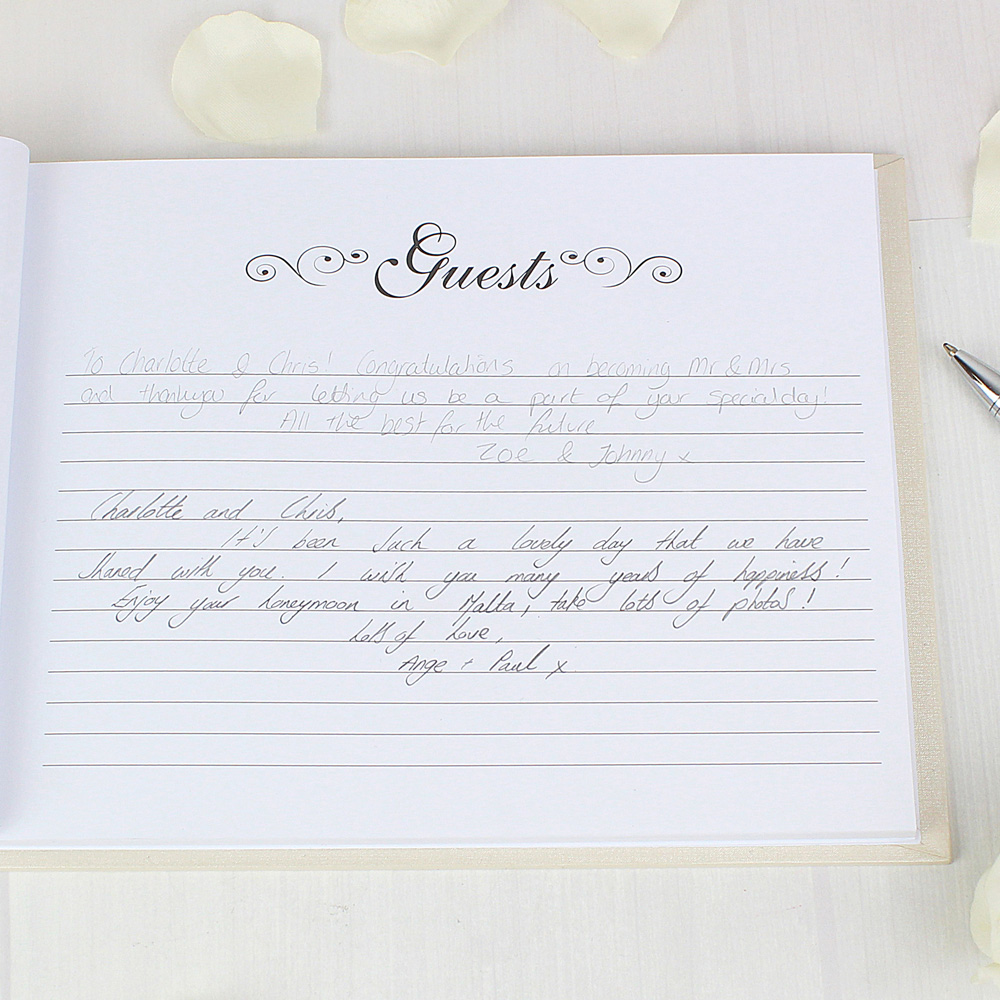 Guests
To Charlotte & Chris! Congratulations on becoming Mr & Mrs
and thankyou for letting us be a part of your special day!
All the best for the future
Zoe & Johnny x
Charlotte and Chris,
It's been such a lovely day that we have
shared with you. I wish you many years of happiness!
Enjoy your honeymoon in Malta, take lots of photos!
Lots of Love,
Ange + Paul x